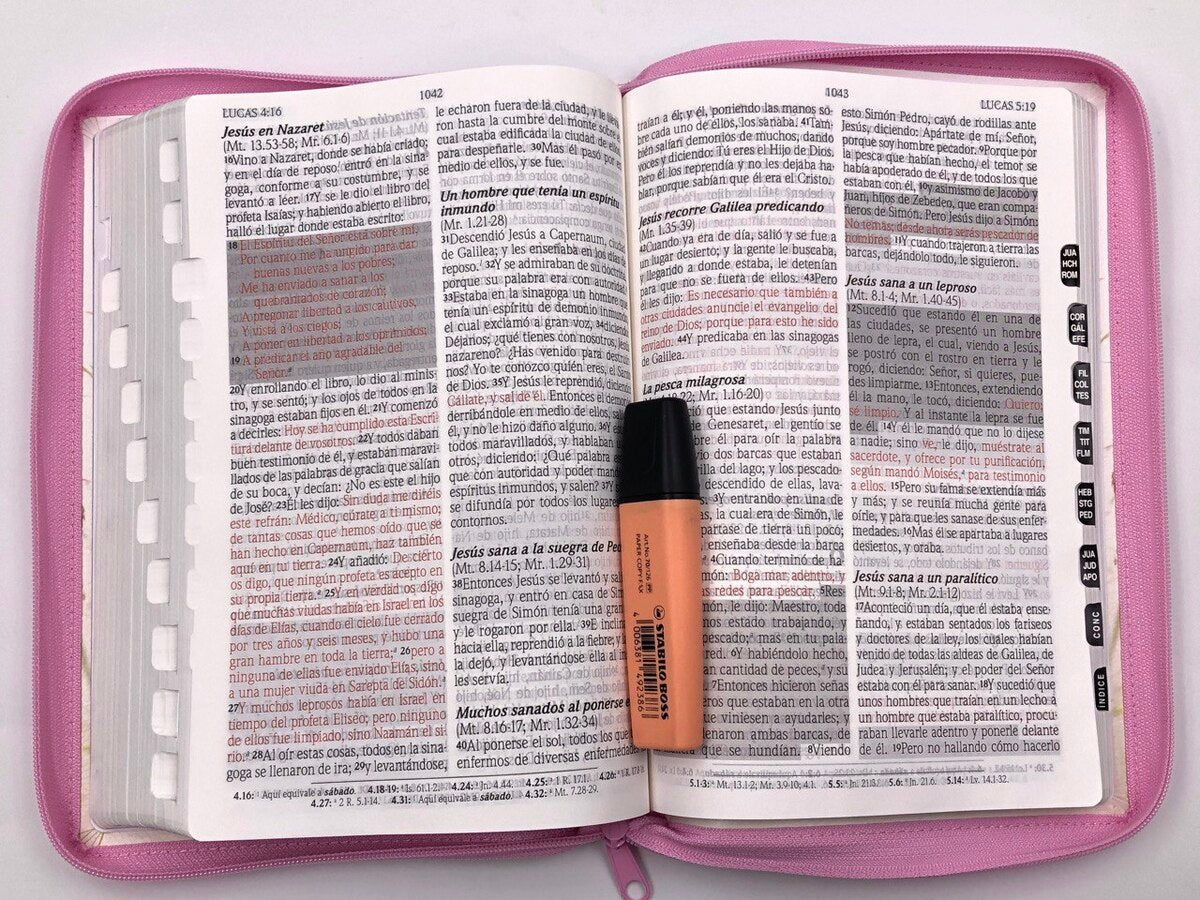 LUCAS 4:16
1042
Jesús en Nazaret
(Mt. 13.53-58; Mr. 6.1-6)
16Vino a Nazaret, donde se había criado;
y en el día de reposo* entró en la sina
goga, conforme a su costumbre, y se
levantó a leer. 17Y se le dio el libro del
profeta Isaías; y habiendo abierto el libro,
halló el lugar donde estaba escrito:
18 El Espíritu del Señor está sobre mí,
Por cuanto me ha ungido para dar
buenas nuevas a los pobres;
Me ha enviado a sanar a los
quebrantados de corazón;
A pregonar libertad a los cautivos,
Y vista a los ciegos;
A poner en libertad a los oprimidos;
19 A predicar el año agradable del
Señor.
20Y enrollando el libro, lo dio al minis-
tro, y se sentó; y los ojos de todos en la
sinagoga estaban fijos en él. 21Y comenzó
a decirles: Hoy se ha cumplido esta Escri-
tura delante de vosotros. 22Y todos daban
buen testimonio de él, y estaban maravi-
llados de las palabras de gracia que salían
de su boca, y decían: ¿No es este el hijo
de José? 23Él les dijo: Sin duda me diréis
este refrán: Médico, cúrate a ti mismo;
de tantas cosas que hemos oído que se
han hecho en Capernaum, haz también
aquí en tu tierra. 24Y añadió: De cierto
os digo, que ningún profeta es acepto en
su propia tierra. 25Y en verdad os digo
que muchas viudas había en Israel en los
días de Elías, cuando el cielo fue cerrado
por tres años y seis meses, y hubo una
gran hambre en toda la tierra; 26pero a
ninguna de ellas fue enviado Elías, sino
a una mujer viuda en Sarepta de Sidón.
27Y muchos leprosos había en Israel en
tiempo del profeta Eliseo; pero ninguno
de ellos fue limpiado, sino Naamán el si-
rio. 28Al oír estas cosas, todos en la sina-
goga se llenaron de ira; 29y levantándose,
le echaron fuera de la ciudad, y le
ron hasta la cumbre del monte sobre el
cual estaba edificada la ciudad de
para despeñarle. 30Mas él pasó por
medio de ellos, y se fue.
Un hombre que tenía un espíritu
inmundo
(Mr. 1.21-28)
31Descendió Jesús a Capernaum, ciudad
de Galilea; y les enseñaba en los días de
reposo. 32Y se admiraban de su doctrina,
porque su palabra era con autoridad.
33Estaba en la sinagoga un hombre que
tenía un espíritu de demonio inmundo,
el cual exclamó a gran voz, 34diciendo:
Déjanos; ¿qué tienes con nosotros, Jesús
nazareno? ¿Has venido para destruir
nos? Yo te conozco quién eres, el Santo
de Dios. 35Y Jesús le reprendió, diciendo:
Cállate, y sal de él. Entonces el demonio,
derribándole en medio de ellos, salió
él, y no le hizo daño alguno. 36Y
todos maravillados, y hablaban
otros, diciendo: ¿Qué palabra es
que con autoridad y poder manda
espíritus inmundos, y salen? 37Y
se difundía por todos los lugares
contornos.
Jesús sana a la suegra de Ped
(Mt. 8.14-15; Mr. 1.29-31)
38Entonces Jesús se levantó y salió
sinagoga, y entró en casa de Simón
suegra de Simón tenía una gran
y le rogaron por ella. 39E inclin
hacia ella, reprendió a la fiebre; y
la dejó, y levantándose ella al in
les servía.
Muchos sanados al ponerse e
(Mt. 8.16-17; Mr. 1.32-34)
40Al ponerse el sol, todos los que
enfermos de diversas enfermedades
4.16: Aquí equivale a sábado. 4.18-19: Is. 61.1-2. 4.24: Jn. 4.44. 4.25: 1 R. 17.1. 4.26: 1 R. 17.8-16.
4.27: 2 R. 5.1-14. 4.31: Aquí equivale a sábado. 4.32: Mt. 7.28-29.
1043
LUCAS 5:19
traían a él; y él, poniendo las manos so-
bre cada uno de ellos, los sanaba. 41Tam
bién salían demonios de muchos, dando
voces y diciendo: Tú eres el Hijo de Dios.
Pero él los reprendía y no les dejaba ha-
blar, porque sabían que él era el Cristo.
Jesús recorre Galilea predicando
(Mr. 1.35-39)
42Cuando ya era de día, salió y se fue a
un lugar desierto; y la gente le buscaba,
y llegando a donde estaba, le detenían
para que no se fuera de ellos. 43Pero
él les dijo: Es necesario que también a
otras ciudades anuncie el evangelio del
reino de Dios; porque para esto he sido
enviado. 44Y predicaba en las sinagogas
de Galilea.
La pesca milagrosa
18-22; Mr. 1.16-20)
que estando Jesús junto
de Genesaret, el gentío se
bre él para oír la palabra
vio dos barcas que estaban
rilla del lago; y los pescado-
descendido de ellas, lava-
3Y entrando en una de
la cual era de Simón, le
partase de tierra un poco;
enseñaba desde la barca
4Cuando terminó de ha
món: Boga mar adentro, y
as redes para pescar. 5Res
món, le dijo: Maestro, toda
estado trabajando, y
pescado; mas en tu pala
red. 6Y habiéndolo hecho,
cantidad de peces, y su
7Entonces hicieron señas
que estaban en la otra
viniesen a ayudarles; y
ambas barcas,
que se hundían. 8Viendo
esto Simón Pedro, cayó de rodillas ante
Jesús, diciendo: Apártate de mí, Señor,
porque soy hombre pecador. 9Porque por
la pesca que habían hecho, el temor se
había apoderado de él, y de todos los que
estaban con él, 10y asimismo de Jacobo y
Juan, hijos de Zebedeo, que eran compa-
ñeros de Simón. Pero Jesús dijo a Simón:
No temas; desde ahora serás pescador de
hombres. 11Y cuando trajeron a tierra las
barcas, dejándolo todo, le siguieron.
Jesús sana a un leproso
(Mt. 8.1-4; Mr. 1.40-45)
12Sucedió que estando él en una de
las ciudades, se presentó un hombre
lleno de lepra, el cual, viendo a Jesús,
se postró con el rostro en tierra y le
rogó, diciendo: Señor, si quieres, pue-
des limpiarme. 13Entonces, extendiendo
la mano, le tocó, diciendo: Quiero;
sé limpio. Y al instante la lepra se fue
de él. 14Y él le mandó que no lo dijese
a nadie; sino ve, le dijo, muéstrate al
sacerdote, y ofrece por tu purificación,
según mandó Moisés, para testimonio
a ellos. 15Pero su fama se extendía más
y más; y se reunía mucha gente para
oírle, y para que les sanase de sus enfer-
medades. 16Mas él se apartaba a lugares
desiertos, y oraba.
Jesús sana a un paralítico
(Mt. 9.1-8; Mr. 2.1-12)
17Aconteció un día, que él estaba ense-
ñando, y estaban sentados los fariseos
y doctores de la ley, los cuales habían
venido de todas las aldeas de Galilea, de
Judea y Jerusalén; y el poder del Señor
estaba con él para sanar. 18Y sucedió que
unos hombres que traían en un lecho a
un hombre que estaba paralítico, procu-
raban llevarle adentro y ponerle delante
de él. 19Pero no hallando cómo hacerlo
5.1-3: Mt. 13.1-2; Mr. 3.9-10; 4.1. 5.5: Jn. 21.3. 5.6: Jn. 21.6. 5.14: Lv. 14.1-32.
JUA
HCH
ROM
COR
GÁL
EFE
FIL
COL
TES
TIM
TIT
FLM
HEB
STG
PED
JUA
JUD
APO
CONC
ÍNDICE
Art.No.70/126
PAPER COPY FAX
STABILO BOSS
4 006381 492386